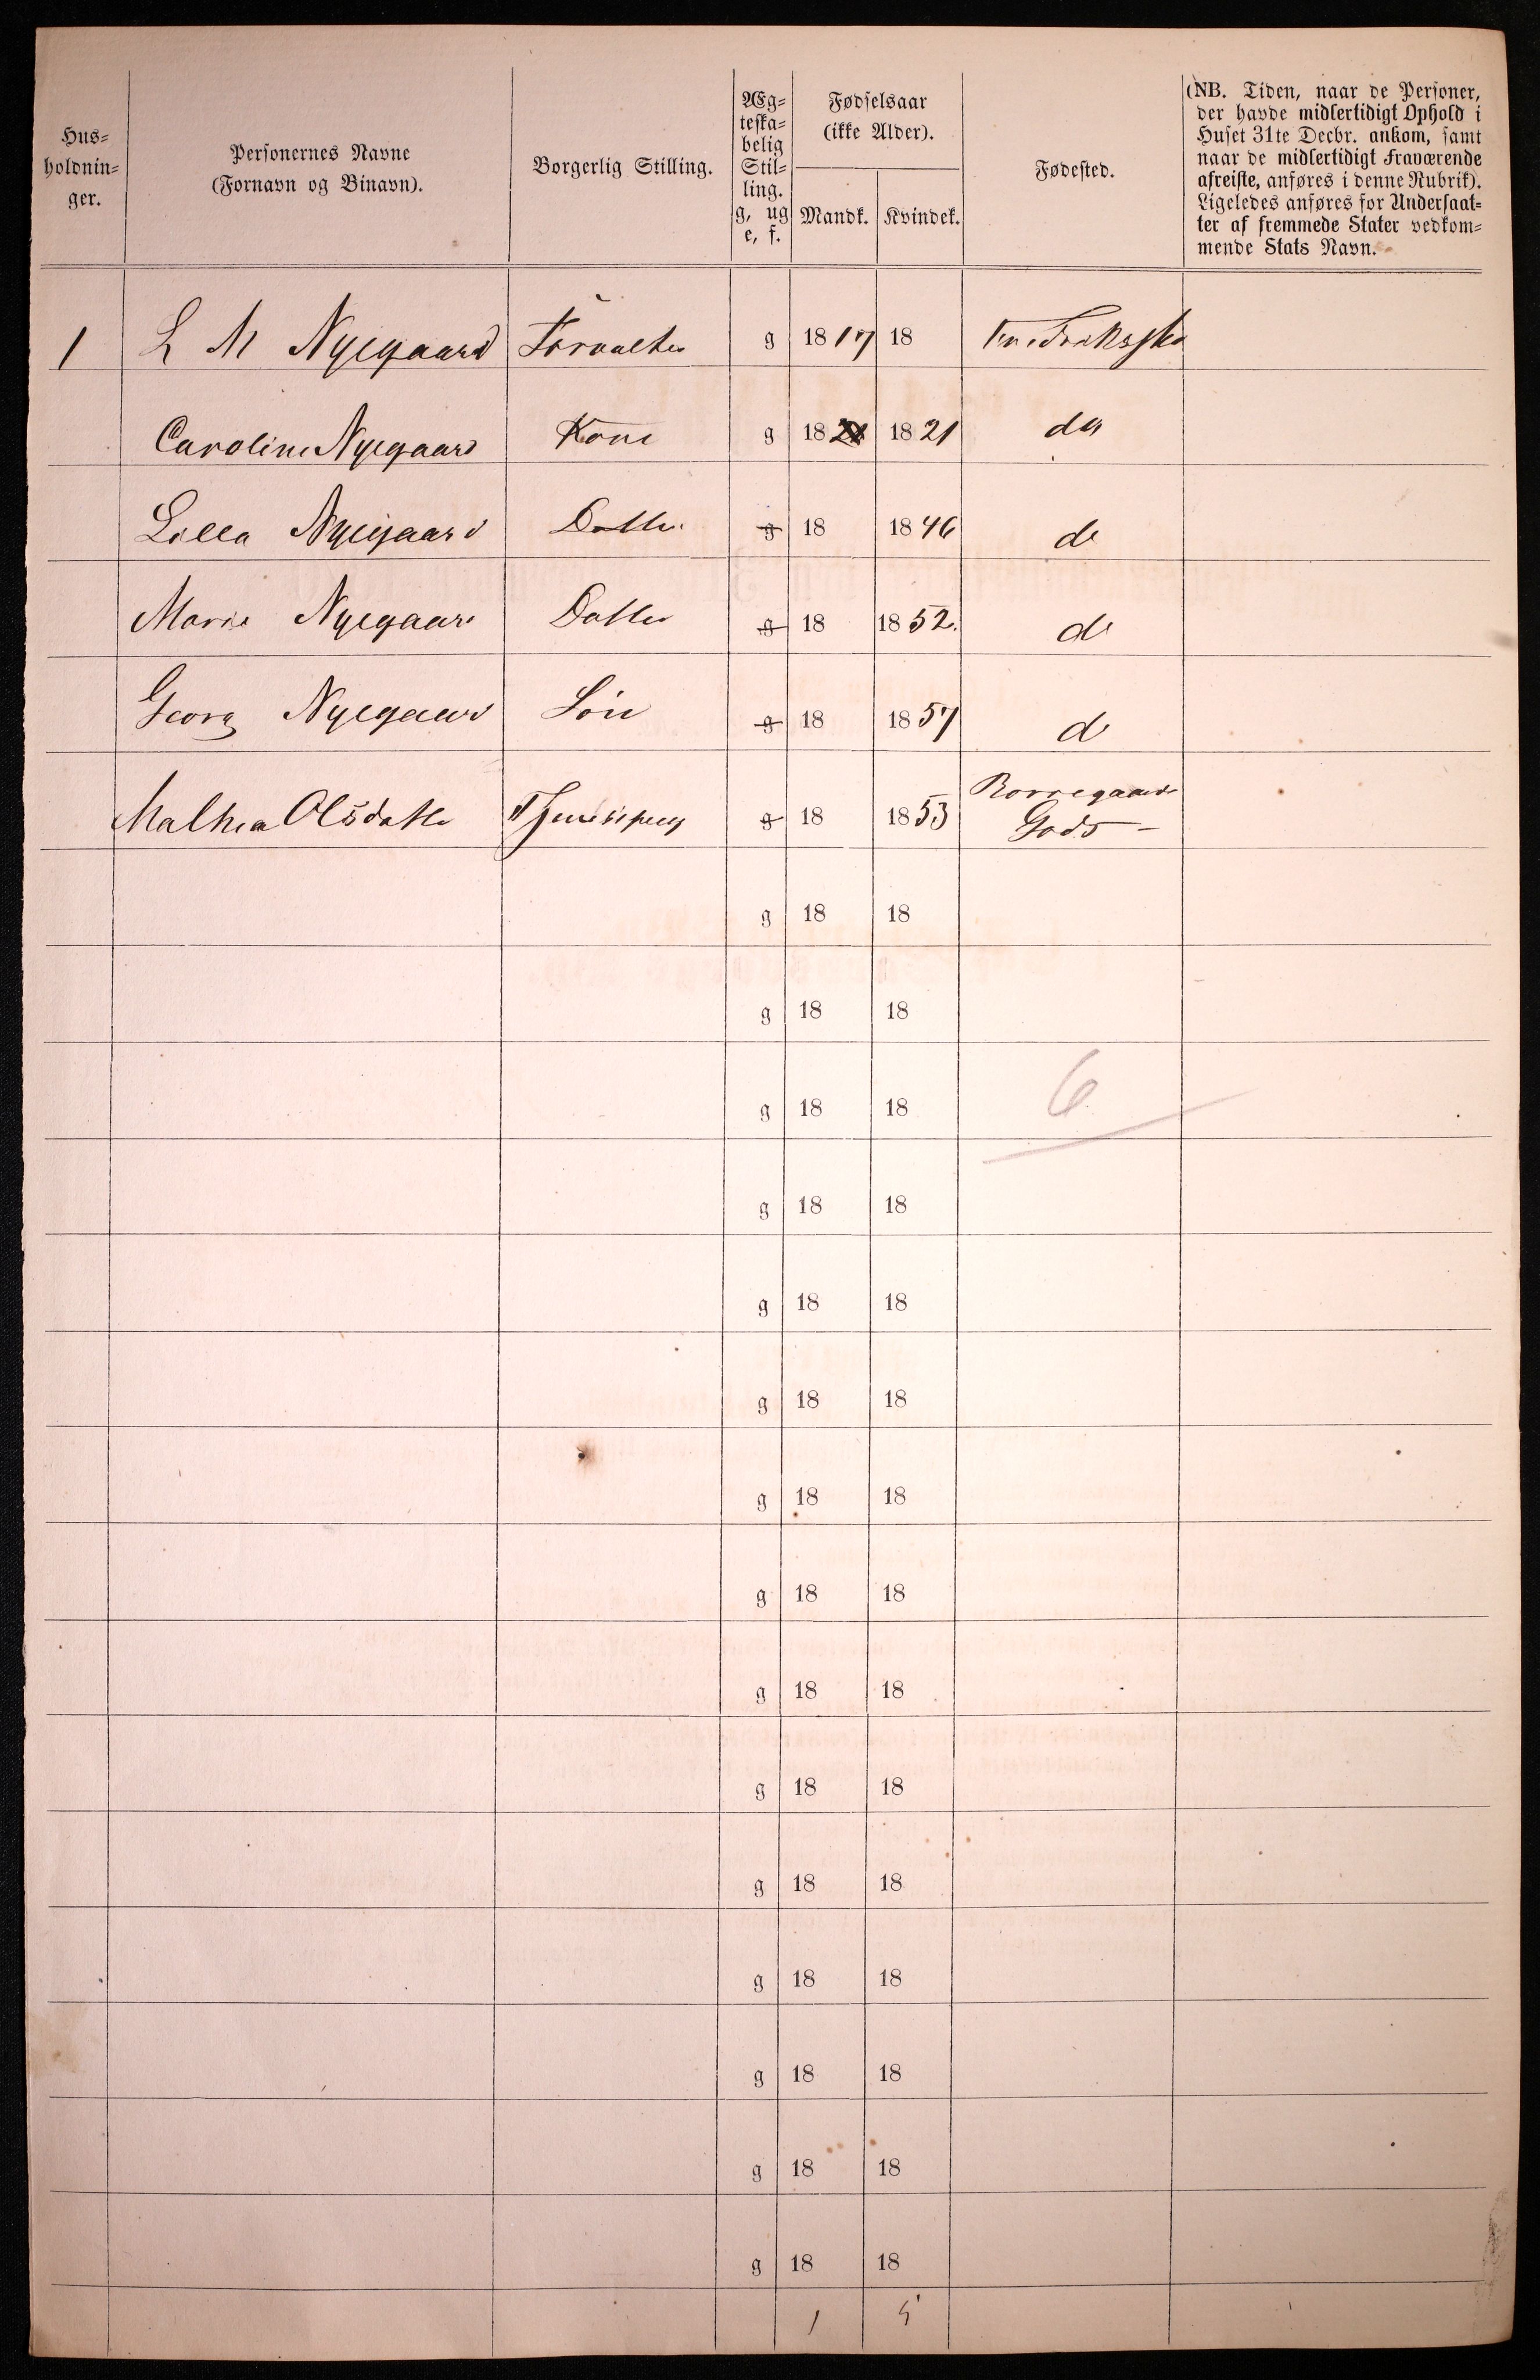 Hus-
holdnin-
ger.
Personernes Navne
(Fornavn og Binavn).
Borgerlig Stilling.
Æg-
teska-
belig
Stil-
ling.
g, ug
e, f.
Fødselsaar
(ikke Alder).
Mandk.
Kvindek.
Fødested.
(NB. Tiden, naar de Personer,
der havde midlertidigt Ophold i
Huset 31te Decbr. ankom, samt
naar de midlertidigt Fraværende
afreiste, anføres i denne Rubrik).
Ligeledes anføres for Undersaat-
ter af fremmede Stater vedkom-
mende Stats Navn.
1 L M Nyegaard Forvalter g 1817 18
Caroline Nyegaard Kone g 18 1821 do
Lilla Nyegaard Datter g 18 1846 do
Marie Nyegaard Datter g 18 1852. do
Georg Nyegaard Sön g 18 1857 do
Mathea Olsdatter g 18 1853 Borregaard
Gods
g 18 18
g 18 18
g 18 18 6
g 18 18
g 18 18
g 18 18
g 18 18
g 18 18
g 18 18
g 18 18
g 18 18
g 18 18
g 18 18
g 18 18
g 18 18
1 5